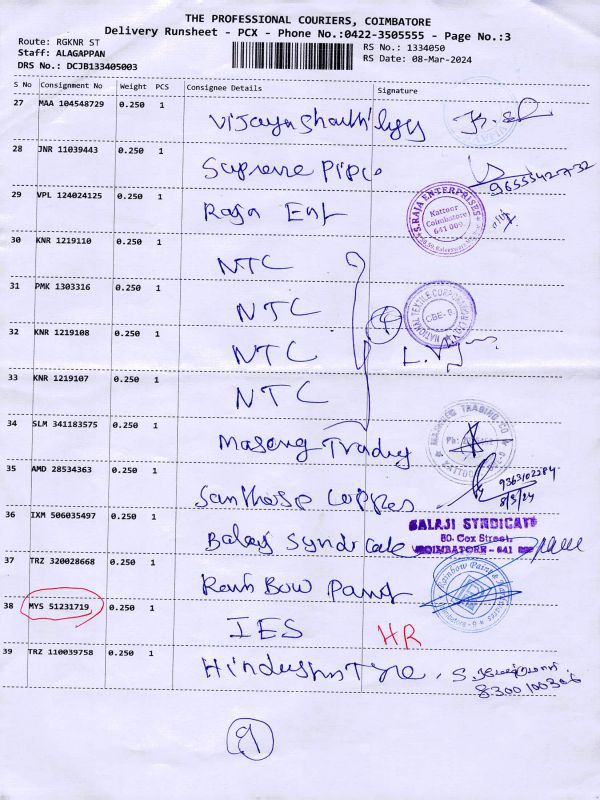 THE PROFESSIONAL COURIERS, COIMBATORE
Delivery Runsheet - PCX - Phone No.:0422-3505555 - Page No.:3
Route: RGKNR ST
Staff: ALAGAPPAN
DRS No.: DCJB133405003
RS No.: 1334050
RS Date: 08-Mar-2024
S No Consignment No Weight PCS Consignee Details Signature
27 MAA 104548729 0.250 1
28 JNR 11039443 0.250 1 Supreme Pipe
9655542732
29 VPL 124024125 0.250 1 Raja Ent
S.RAJA ENTERPRISES Kattoor Coimbatore 641 009
30 KNR 1219110 0.250 1 NTC
31 PMK 1303316 0.250 1 NTC
NATIONAL TEXTILE CORPORATION CBE-9
4
32 KNR 1219108 0.250 1 NTC
33 KNR 1219107 0.250 1 NTC
34 SLM 341183575 0.250 1 Trading
TRADING CO
35 AMD 28534363 0.250 1
9363102284
8/3/24
36 IXM 506035497 0.250 1 Balaji Syndicate
BALAJI SYNDICATE
80. Cox Street,
COIMBATORE - 641
37 TRZ 320028668 0.250 1 Rain Bow Paint
Rainbow Paints
38 MYS 51231719 0.250 1 IES HR
39 TRZ 110039758 0.250 1 Hindustan Tyre
8300100306
9